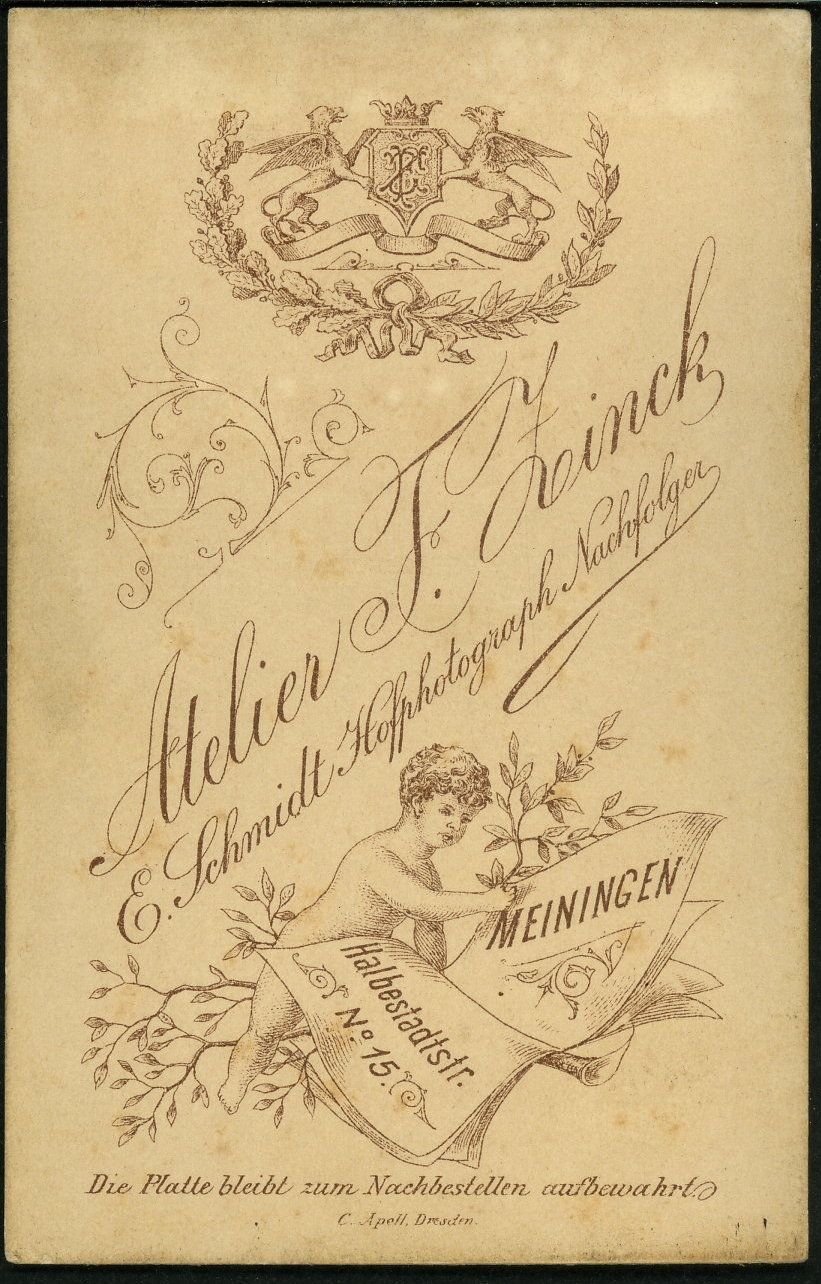 Atelier F. Zinck
E. Schmidt Hofphotograph Nachfolger
MEININGEN
Halbestadtstr.
No. 15.
Die Platte bleibt zum Nachbestellen aufbewahrt.
C. Apell, Dresden.